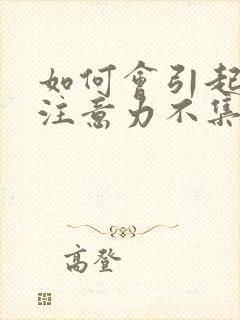 如何會引起
注意力不集
高登